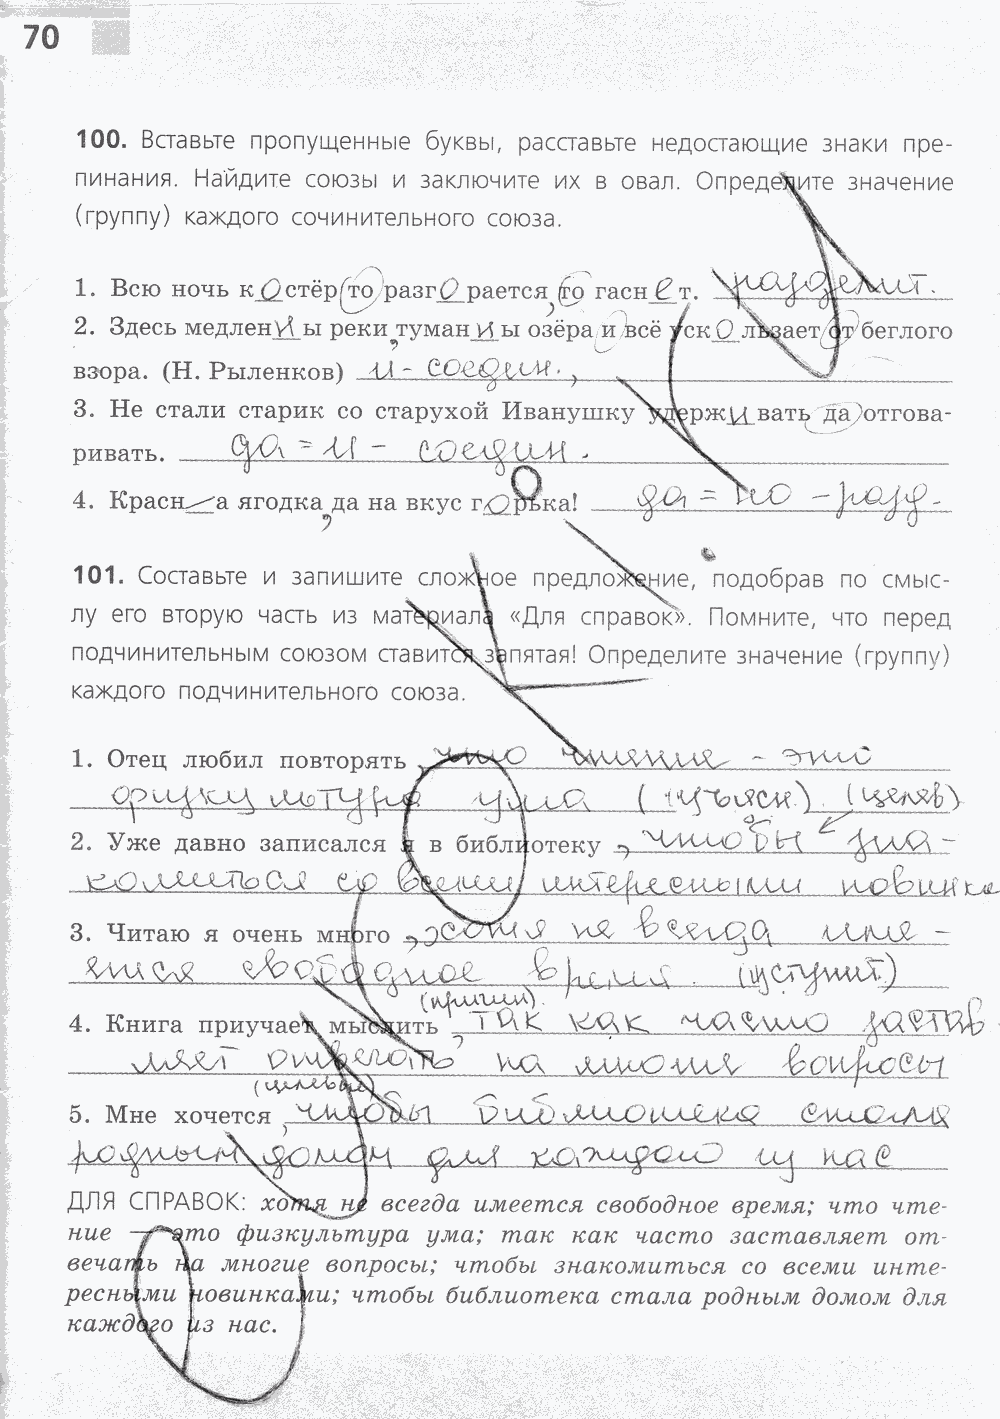 70
100. Вставьте пропущенные буквы, расставьте недостающие знаки пре-
пинания. Найдите союзы и заключите их в овал. Определите значение
(группу) каждого сочинительного союза.
1. Всю ночь костёр то разгорается, то гаснет. разделит.
2. Здесь медлены реки, туманны озёра и всё ускользает от беглого
взора. (Н. Рыленков) и - соедин.,
3. Не стали старик со старухой Иванушку удерживать да отгова-
ривать. да = и - соедин.
4. Красна ягодка, да на вкус горька! да = но - разд.
101. Составьте и запишите сложное предложение, подобрав по смыс-
лу его вторую часть из материала «Для справок». Помните, что перед
подчинительным союзом ставится запятая! Определите значение (группу)
каждого подчинительного союза.
1. Отец любил повторять, что чтение - это
физкультура ума (изъясн). (целев)
2. Уже давно записался я в библиотеку, чтобы зна-
комиться со всеми интересными новинка
3. Читаю я очень много, хотя не всегда име-
ется свободное время. (уступит.)
(причин).
4. Книга приучает мыслить, так как часто застав-
ляет отвечать на многие вопросы
(целевой)
5. Мне хочется, чтобы библиотека стала
родным домом для каждого из нас
ДЛЯ СПРАВОК: хотя не всегда имеется свободное время; что чте-
ние — это физкультура ума; так как часто заставляет от-
вечать на многие вопросы; чтобы знакомиться со всеми инте-
ресными новинками; чтобы библиотека стала родным домом для
каждого из нас.